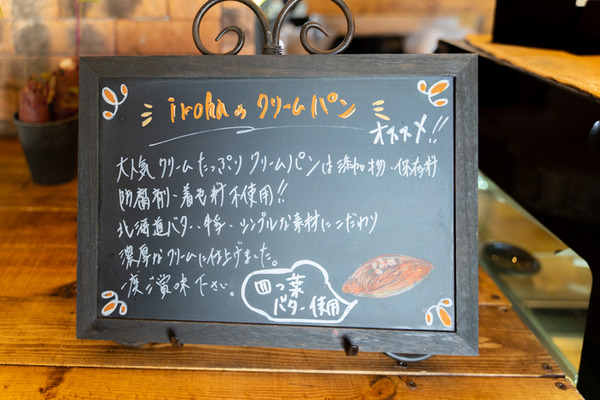 irohaのクリームパン
オススメ!!
大人気クリームたっぷりクリームパンは添加物・保存料
防腐剤・着色料不使用!!
北海道バター、牛乳、シンプルな素材にこだわり
濃厚なクリームに仕上げました。
一度ご賞味下さい。
四つ葉
バター使用